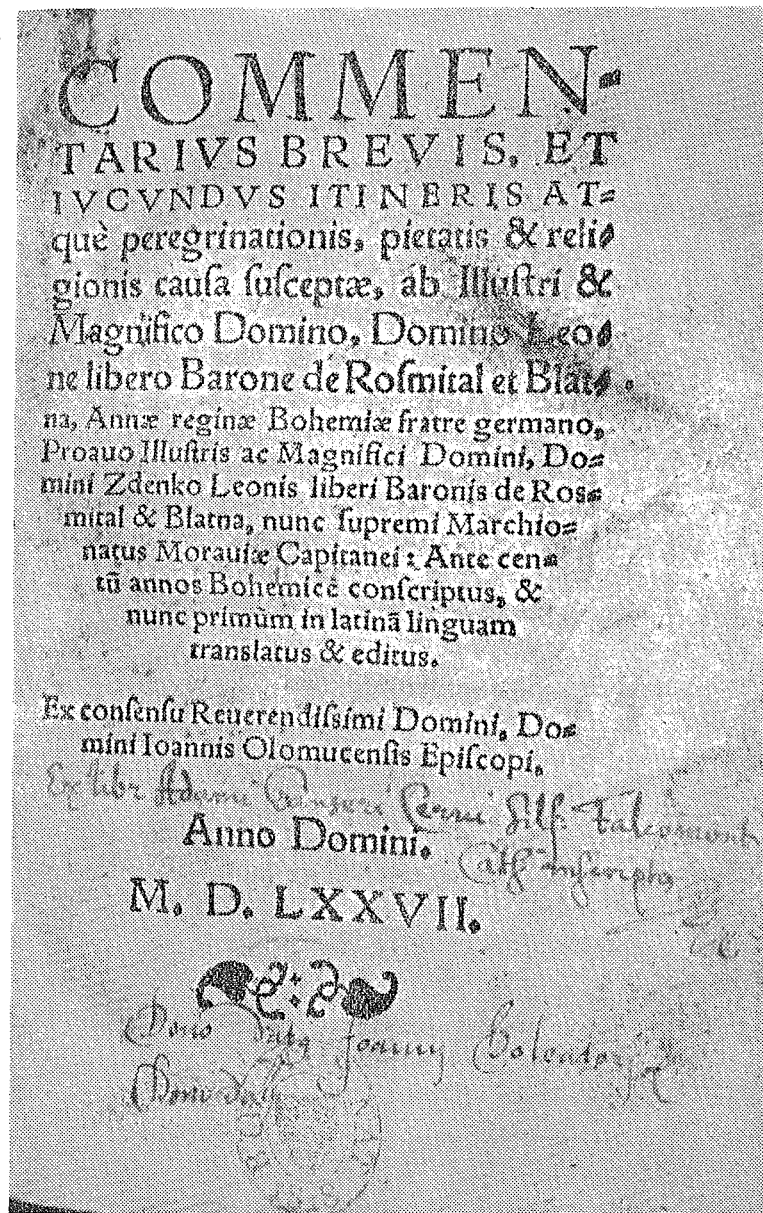 COMMEN-
TARIVS BREVIS, ET
IVCVNDVS ITINERIS AT=
què peregrinationis, pietatis & reli=
gionis cauſa ſuſceptæ, ab Illuſtri &
Magnifico Domino, Domino Leo=
ne libero Barone de Roſmital et Blat=
na, Annæ reginæ Bohemiæ fratre germano,
Proauo Illuſtris ac Magnifici Domini, Do=
mini Zdenko Leonis liberi Baronis de Ros=
mital & Blatna, nunc ſupremi Marchio=
natus Morauiæ Capitanei: Ante cen=
tū annos Bohemicè conſcriptus, &
nunc primùm in latinā linguam
translatus & editus.
Ex conſenſu Reuerendiſſimi Domini, Do=
mini Ioannis Olomucenſis Epiſcopi.
Ex libr Adami
Anno Domini.
M. D. LXXVII.
Dono